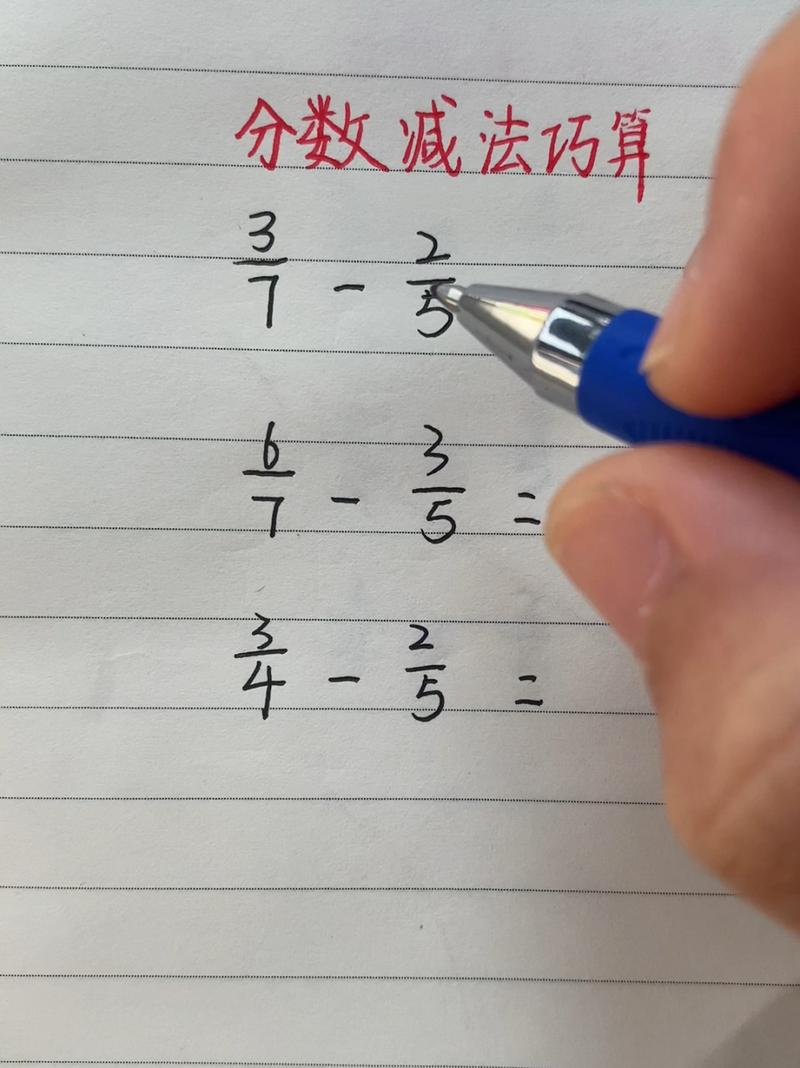 分数减法巧算
3/7 - 2/5
6/7 - 3/5 =
3/4 - 2/5 =